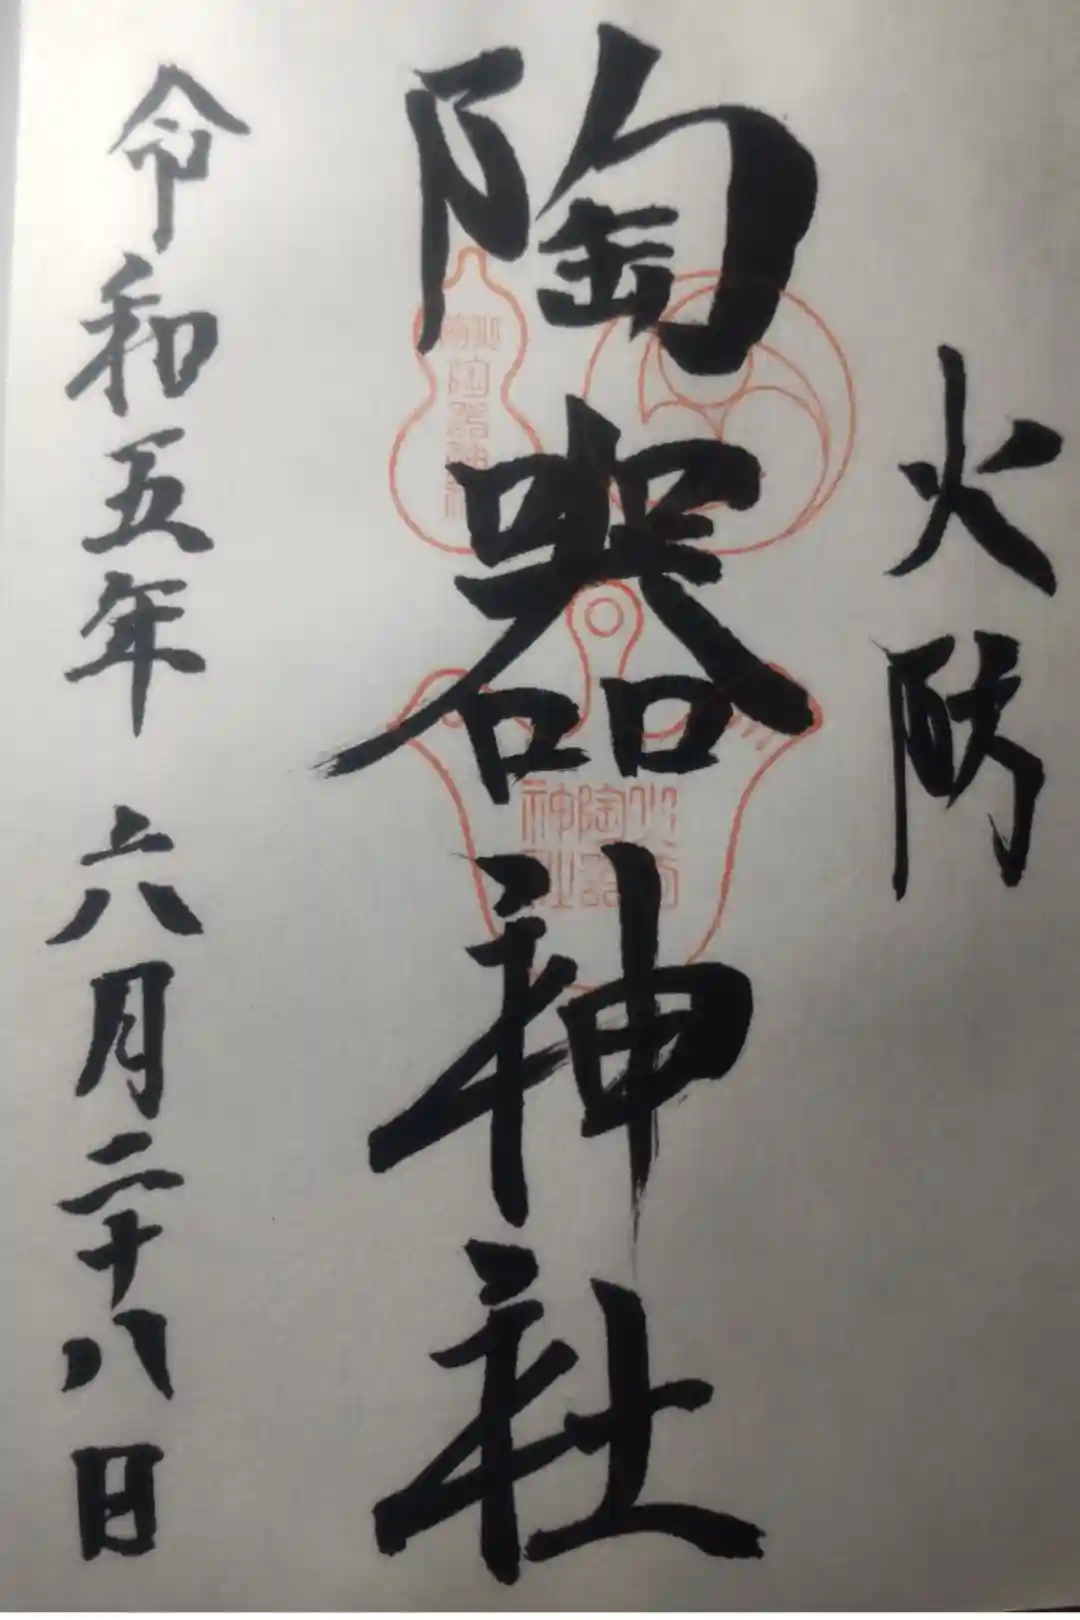 火防
陶器神社
令和五年 六月二十八日
火防
陶器神社
火防
陶器
神社